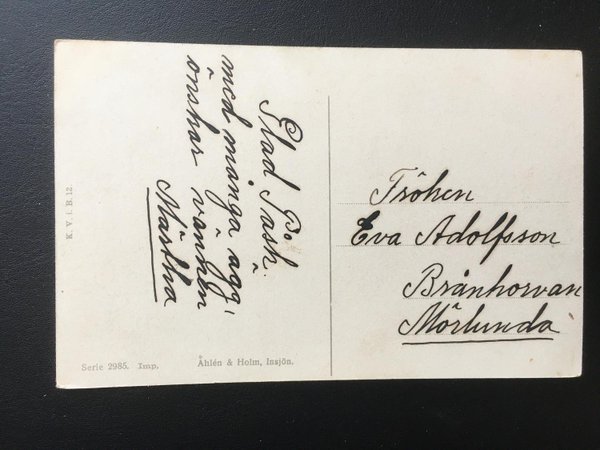 Glad Påsk
med många ägg,
önskar vännen
Märtha
Fröken
Eva Adolfsson
Brånhorvan
Mörlunda
K. V. i. B. 12.
Serie 2985. Imp.
Åhlén & Holm, Insjön.